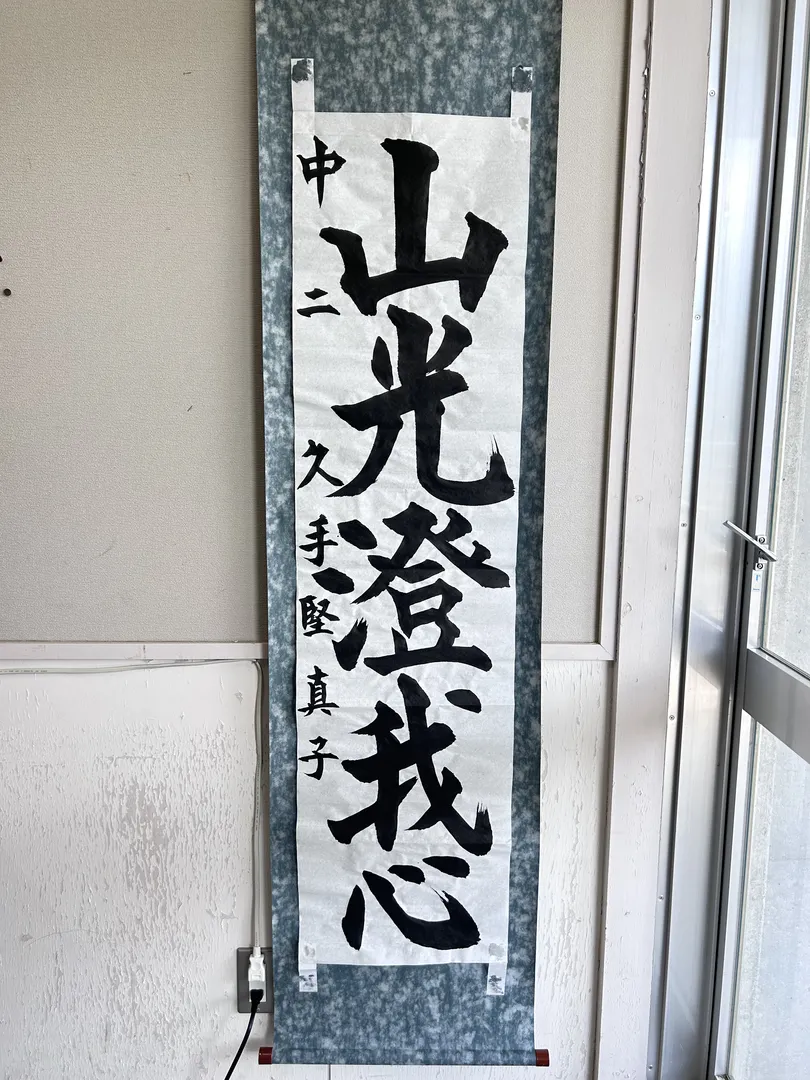 山光澄我心
中二 久手堅真子